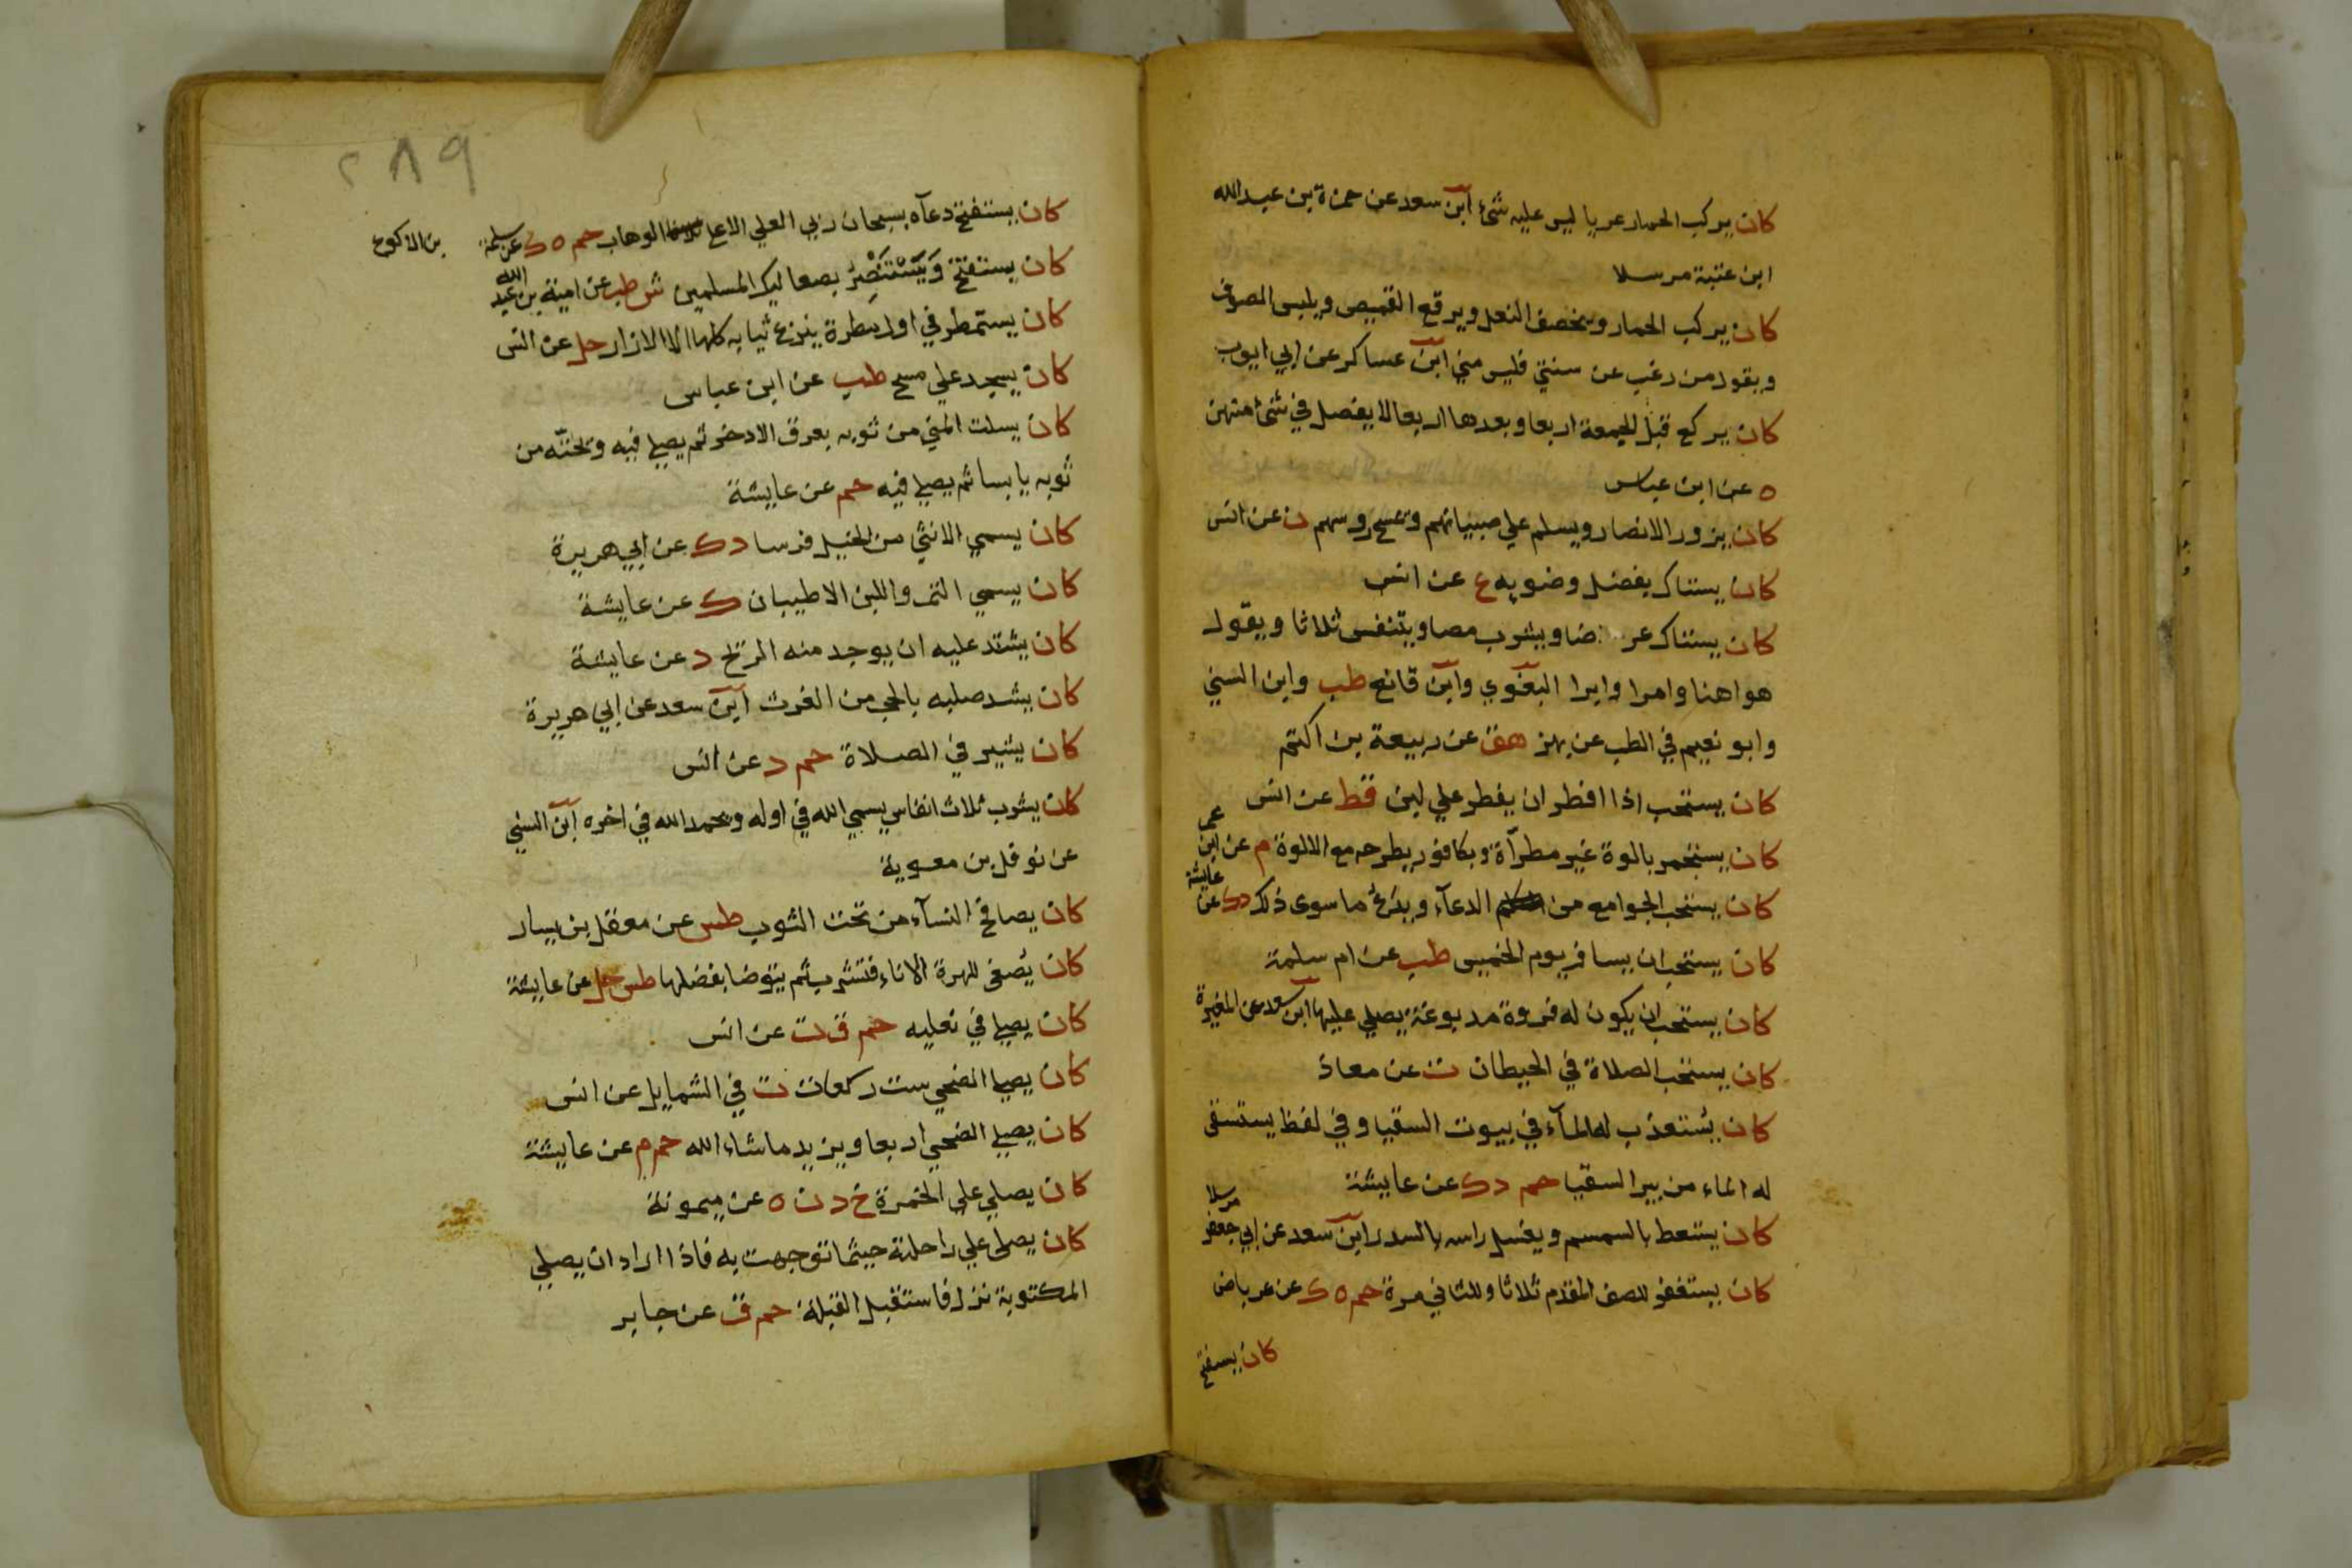 كان يركب الحمار عريا ليس عليه شئ ابن سعد عن حمزة بن عبد الله
ابن عتبة مرسلا
كان يركب الحمار ويخصف النعل ويرقع القميص ويلبس الصوف
ويقول من رغب عن سنتي فليس مني ابن عساكر عن ابي ايوب
كان يركع قبل الجمعة اربعا وبعدها اربعا لا يفصل في شئ منهن
ه عن ابن عباس
كان يزور الانصار ويسلم علي صبيانهم ويمسح روسهم ن عن انس
كان يستاك بفضل وضويه ع عن انس
كان يستاك عرضا ويشرب مصا ويتنفس ثلاثا ويقول
هو اهنا وامرا وابرا البغوي وابن قانع طب وابن السني
وابو نعيم في الطب عن بهز هق عن ربيعة بن اكتم
كان يستحب اذا افطر ان يفطر علي لبن قط عن انس
كان يستجمر بالوة غير مطرآة وبكافور يطرحه مع الالوة م عن ابن عمر
كان يستحب الجوامع من الدعآء ويدع ما سوى ذلك دك عن عايشة
كان يستحب ان يسافر يوم الخميس طب عن ام سلمة
كان يستحب ان يكون له فروة مدبوغة يصلي عليها ابن سعد عن المغيرة
كان يستحب الصلاة في الحيطان ت عن معاذ
كان يستعذب له المآء في بيوت السقيا وفي لفظ يستسقى
له الماء من بير السقيا حم دك عن عايشة
كان يستعط بالسمسم ويغسل راسه بالسدر ابن سعد عن ابي جعفر مرسلا
كان يستغفر للصف المقدم ثلاثا وللثاني مرة حم ه ك عن عرباض
كان يستفتح
٢٨٩
كان يستفتح دعآه بسبحان ربي العلي الاعلا الوهاب حم ه ك عن سلمة بن الاكوع
كان يستفتح وَيَسْتَنْصِرُ بصعاليك المسلمين ش طب عن امية بن عبد الله
كان يستمطر في اول مطرة ينزع ثيابه كلها الا الازار حل عن انس
كان يسجد علي مسح طب عن ابن عباس
كان يسلت المني من ثوبه بعرق الاذخر ثم يصلي فيه ويحتّه من
ثوبه يابسا ثم يصلي فيه حم عن عايشة
كان يسمي الانثي من الخيل فرسا دك عن ابي هريرة
كان يسمي التمر واللبن الاطيبان ك عن عايشة
كان يشتد عليه ان يوجد منه الريح د عن عايشة
كان يشد صلبه بالحجر من الغرث ابن سعد عن ابي هريرة
كان يشير في الصلاة حم د عن انس
كان يشرب ثلاث انفاس يسمي الله في اوله ويحمد الله في اخره ابن السني
عن نوفل بن معوية
كان يصافح النسآء من تحت الثوب طس عن معقل بن يسار
كان يُصغى للهرة الاناء فتشرب ثم يتوضا بفضلها طس حل عن عايشة
كان يصلي في نعليه حم ق ت عن انس
كان يصلي الضحي ست ركعات ت في الشمايل عن انس
كان يصلي الضحي اربعا ويزيد ما شاء الله حم م عن عايشة
كان يصلي على الخمرة خ د ن ه عن ميمونة
كان يصلى علي راحلته حيثما توجهت به فاذا اراد ان يصلي
المكتوبة نزل فاستقبل القبلة حم ق عن جابر